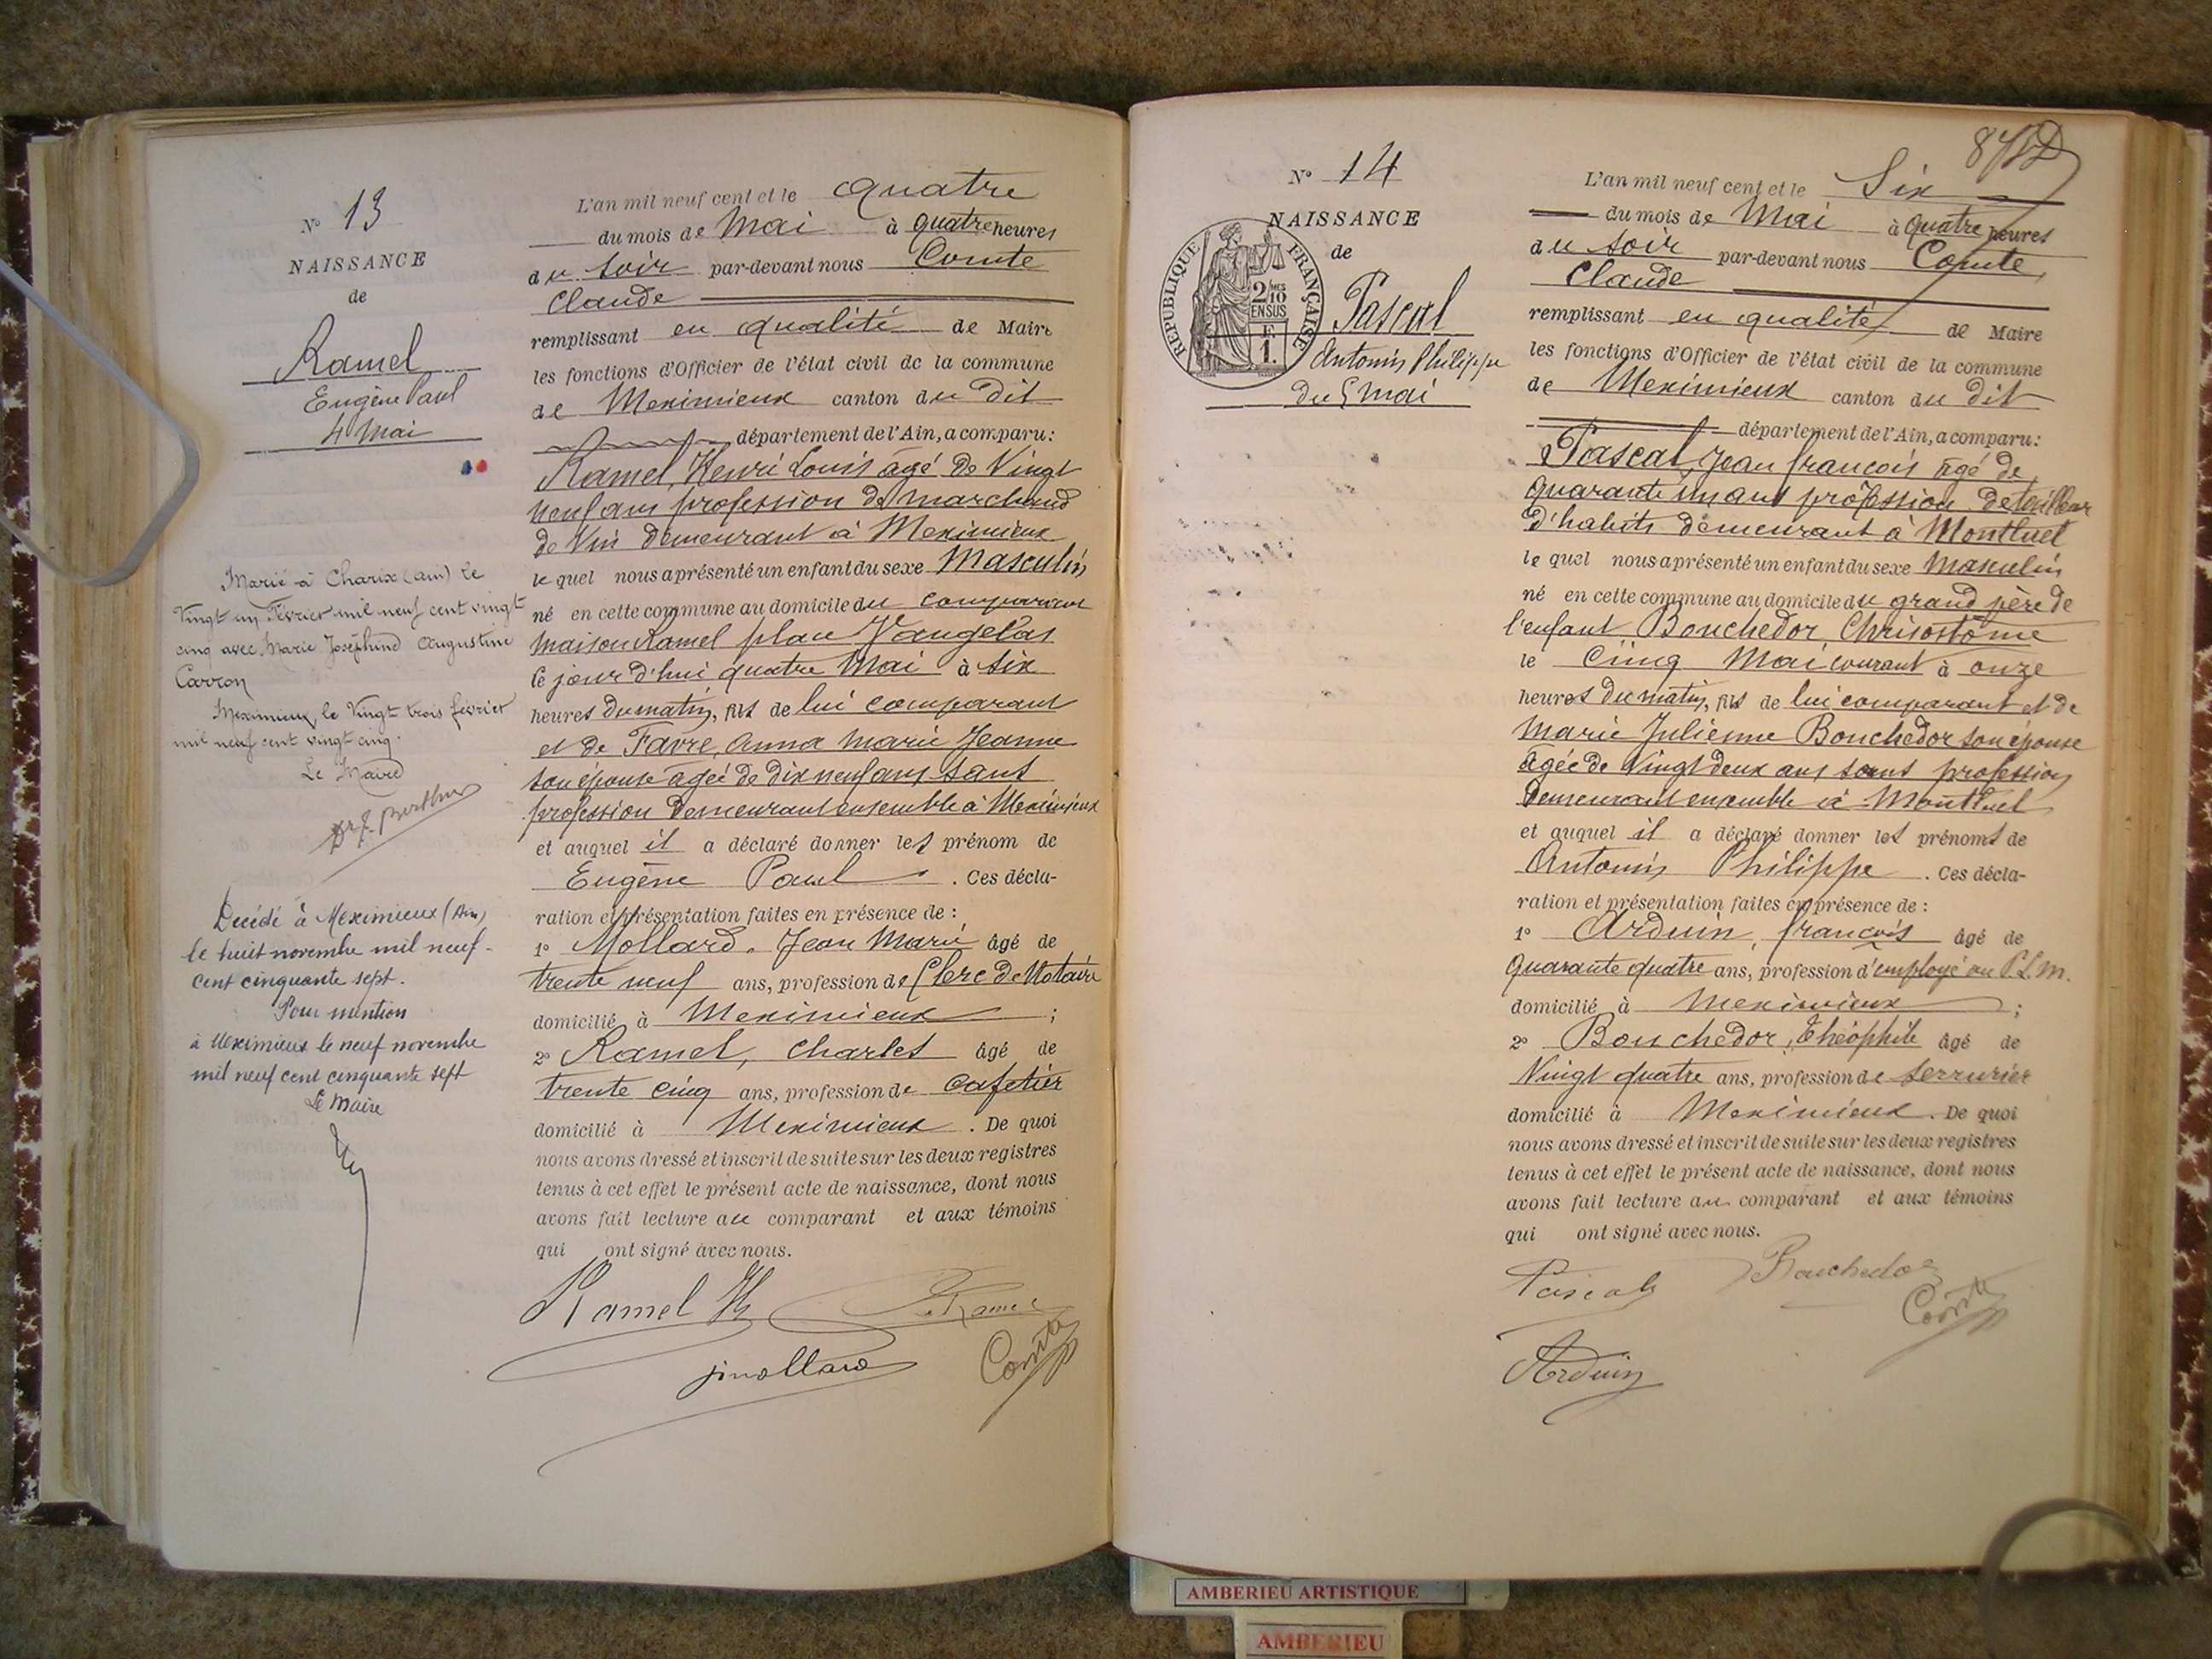 N° 13
NAISSANCE
de
Ramel
Eugène Paul
4 Mai
Marié à Charix (ain) le
Vingt un Février mil neuf cent vingt
cinq avec Marie Joséphine Augustine
Carron
Meximieux, le Vingt trois février
mil neuf cent vingt cinq.
Le Maire
Décédé à Meximieux (Ain)
le huit novembre mil neuf-
cent cinquante sept.
Pour mention
à Meximieux le neuf novembre
mil neuf cent cinquante sept
Le Maire
L'an mil neuf cent et le quatre
du mois de Mai à quatre heures
du soir par-devant nous Comte
Claude
remplissant en qualité de Maire
les fonctions d'Officier de l'état civil de la commune
de Meximieux canton du dit
département de l'Ain, a comparu:
Ramel, Henri Louis âgé de Vingt
neuf ans profession de marchand
de Vin demeurant à Meximieux
le quel nous a présenté un enfant du sexe Masculin
né en cette commune au domicile du comparant
maison Ramel place Vaugelas
le jour d'hui quatre Mai à six
heures du matin, fils de lui comparant
et de Favre, Anna Marie Jeanne
son épouse âgée de dix neuf ans sans
profession demeurant ensemble à Meximieux
et auquel il a déclaré donner les prénom de
Eugène Paul . Ces décla-
ration et présentation faites en présence de :
1° Mollard, Jean Marie âgé de
trente neuf ans, profession de Clerc de Notaire
domicilié à Meximieux ;
2° Ramel, Charles âgé de
trente cinq ans, profession de Cafetier
domicilié à Meximieux . De quoi
nous avons dressé et inscrit de suite sur les deux registres
tenus à cet effet le présent acte de naissance, dont nous
avons fait lecture au comparant et aux témoins
qui ont signé avec nous.
Ramel H Ramel
jmollard Comte
N° 14
NAISSANCE
de
REPUBLIQUE FRANÇAISE
2/10 MES
EN SUS
F.
1.
Pascal
Antonin Philippe
du 5 mai
L'an mil neuf cent et le Six
du mois de Mai à quatre heures
du soir par-devant nous Comte,
Claude
remplissant en qualité de Maire
les fonctions d'Officier de l'état civil de la commune
de Meximieux canton du dit
département de l'Ain, a comparu:
Pascal, Jean françois âgé de
quarante un ans profession de tailleur
d'habits demeurant à Montluel
le quel nous a présenté un enfant du sexe Masculin
né en cette commune au domicile du grand père de
l'enfant, Bouchedor, Chrisostôme
le Cinq Mai courant à onze
heures du matin, fils de lui comparant et de
Marie Julienne Bouchedor son épouse
âgée de Vingt deux ans sans profession
demeurant ensemble à Montluel
et auquel il a déclaré donner les prénoms de
Antonin Philippe . Ces décla-
ration et présentation faites en présence de :
1° Arduin, françois âgé de
quarante quatre ans, profession d'employé au P.L.M.
domicilié à Meximieux ;
2° Bouchedor, Théophile âgé de
Vingt quatre ans, profession de serrurier
domicilié à Meximieux . De quoi
nous avons dressé et inscrit de suite sur les deux registres
tenus à cet effet le présent acte de naissance, dont nous
avons fait lecture au comparant et aux témoins
qui ont signé avec nous.
Pascal Bouchedor
Comte
Arduin
AMBERIEU ARTISTIQUE
AMBERIEU